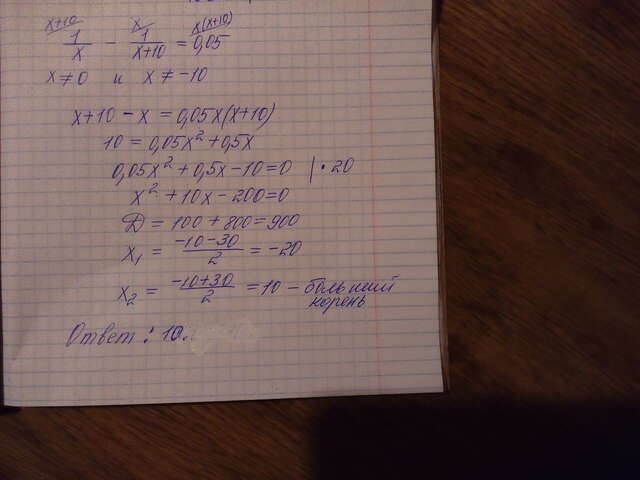 x+10 x x(x+10)
1/x - 1/x+10 = 0,05
x ≠ 0 и x ≠ -10
x+10 - x = 0,05x(x+10)
10 = 0,05x² + 0,5x
0,05x² + 0,5x - 10 = 0 | · 20
x² + 10x - 200 = 0
Д = 100 + 800 = 900
x₁ = -10-30/2 = -20
x₂ = -10+30/2 = 10 - больший
корень
Ответ: 10.